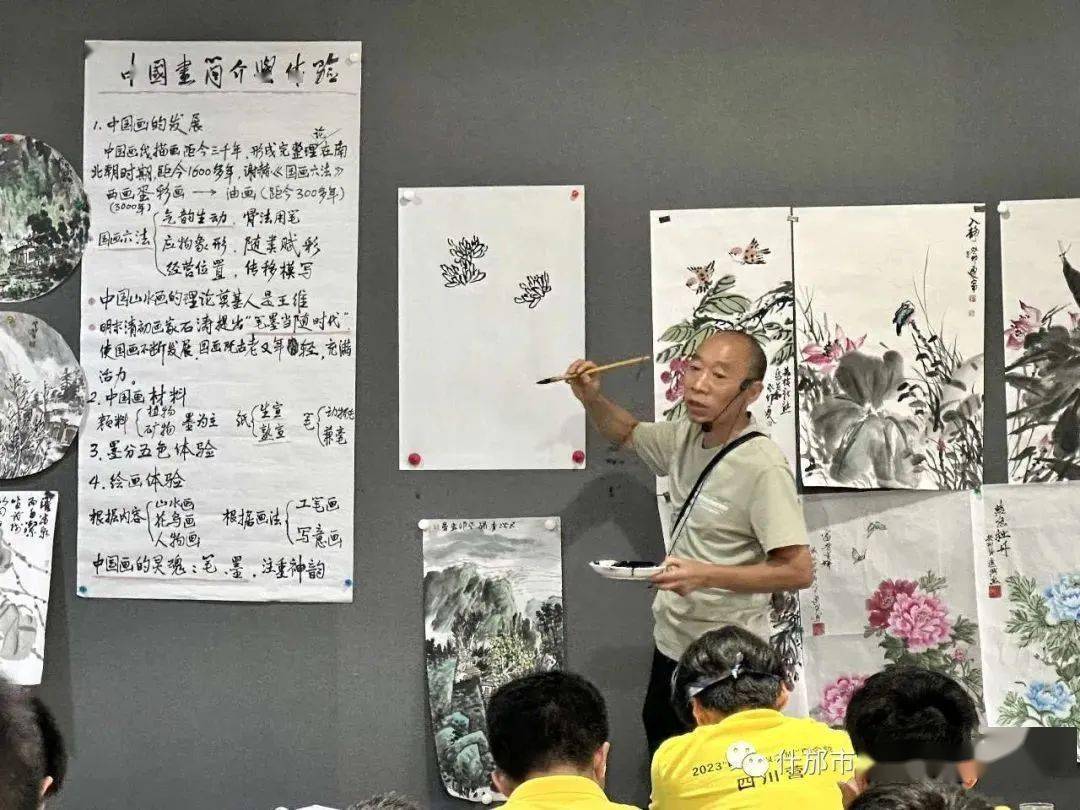 中國畫简介與体验
1.中国画的发展
中国画线描画距今三千年,形成完整理论在南
北朝时期,距今1600多年,谢赫《国画六法》
西画蛋彩画 → 油画(距今300多年)
(3000年)
国画六法
气韵生动、骨法用笔
应物象形、随类赋彩
经营位置、传移模写
中国山水画的理论奠基人是王维
明末清初画家石涛提出"笔墨当随时代"
使国画不断发展,国画既古老又年轻,充满
活力。
2.中国画材料
颜料 植物 矿物 墨为主 纸 生宣 熟宣 笔 动物毛 兼毫
3.墨分五色体验
4.绘画体验
根据内容 山水画 花鸟画 人物画 根据画法 工笔画 写意画
中国画的灵魂:笔、墨,注重神韵
2023
四川营
什邡市